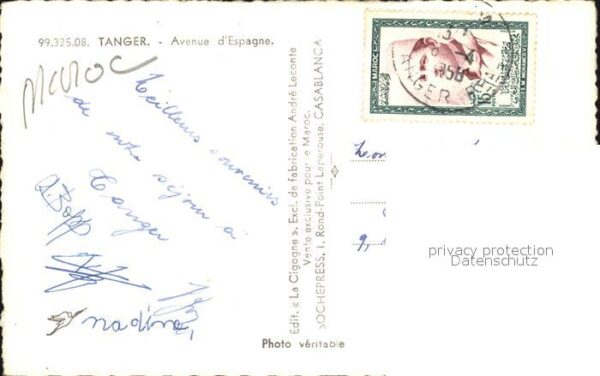 99.325.08. TANGER. - Avenue d'Espagne.
Maroc
Meilleurs souvenirs
de notre séjour à
Tanger
Bopp
nadine,
Edit. « La Cigogne ». Excl. de fabrication André Leconte
Vente exclusive pour le Maroc,
SOCHEPRESS, 1, Rond-Point Laperouse, CASABLANCA
Photo véritable
MAROC
TANGER
1958
15F
privacy protection
Datenschutz